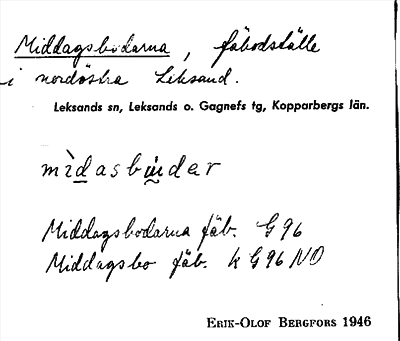 Middagsbodarna, fäbodställe
i nordöstra Leksand.
Leksands sn, Leksands o. Gagnefs tg, Kopparbergs län.
mìdasbu̇dar
Middagsbodarna fäb. G 96
Middagsbo fäb. k G 96 NO
ERIK-OLOF BERGFORS 1946